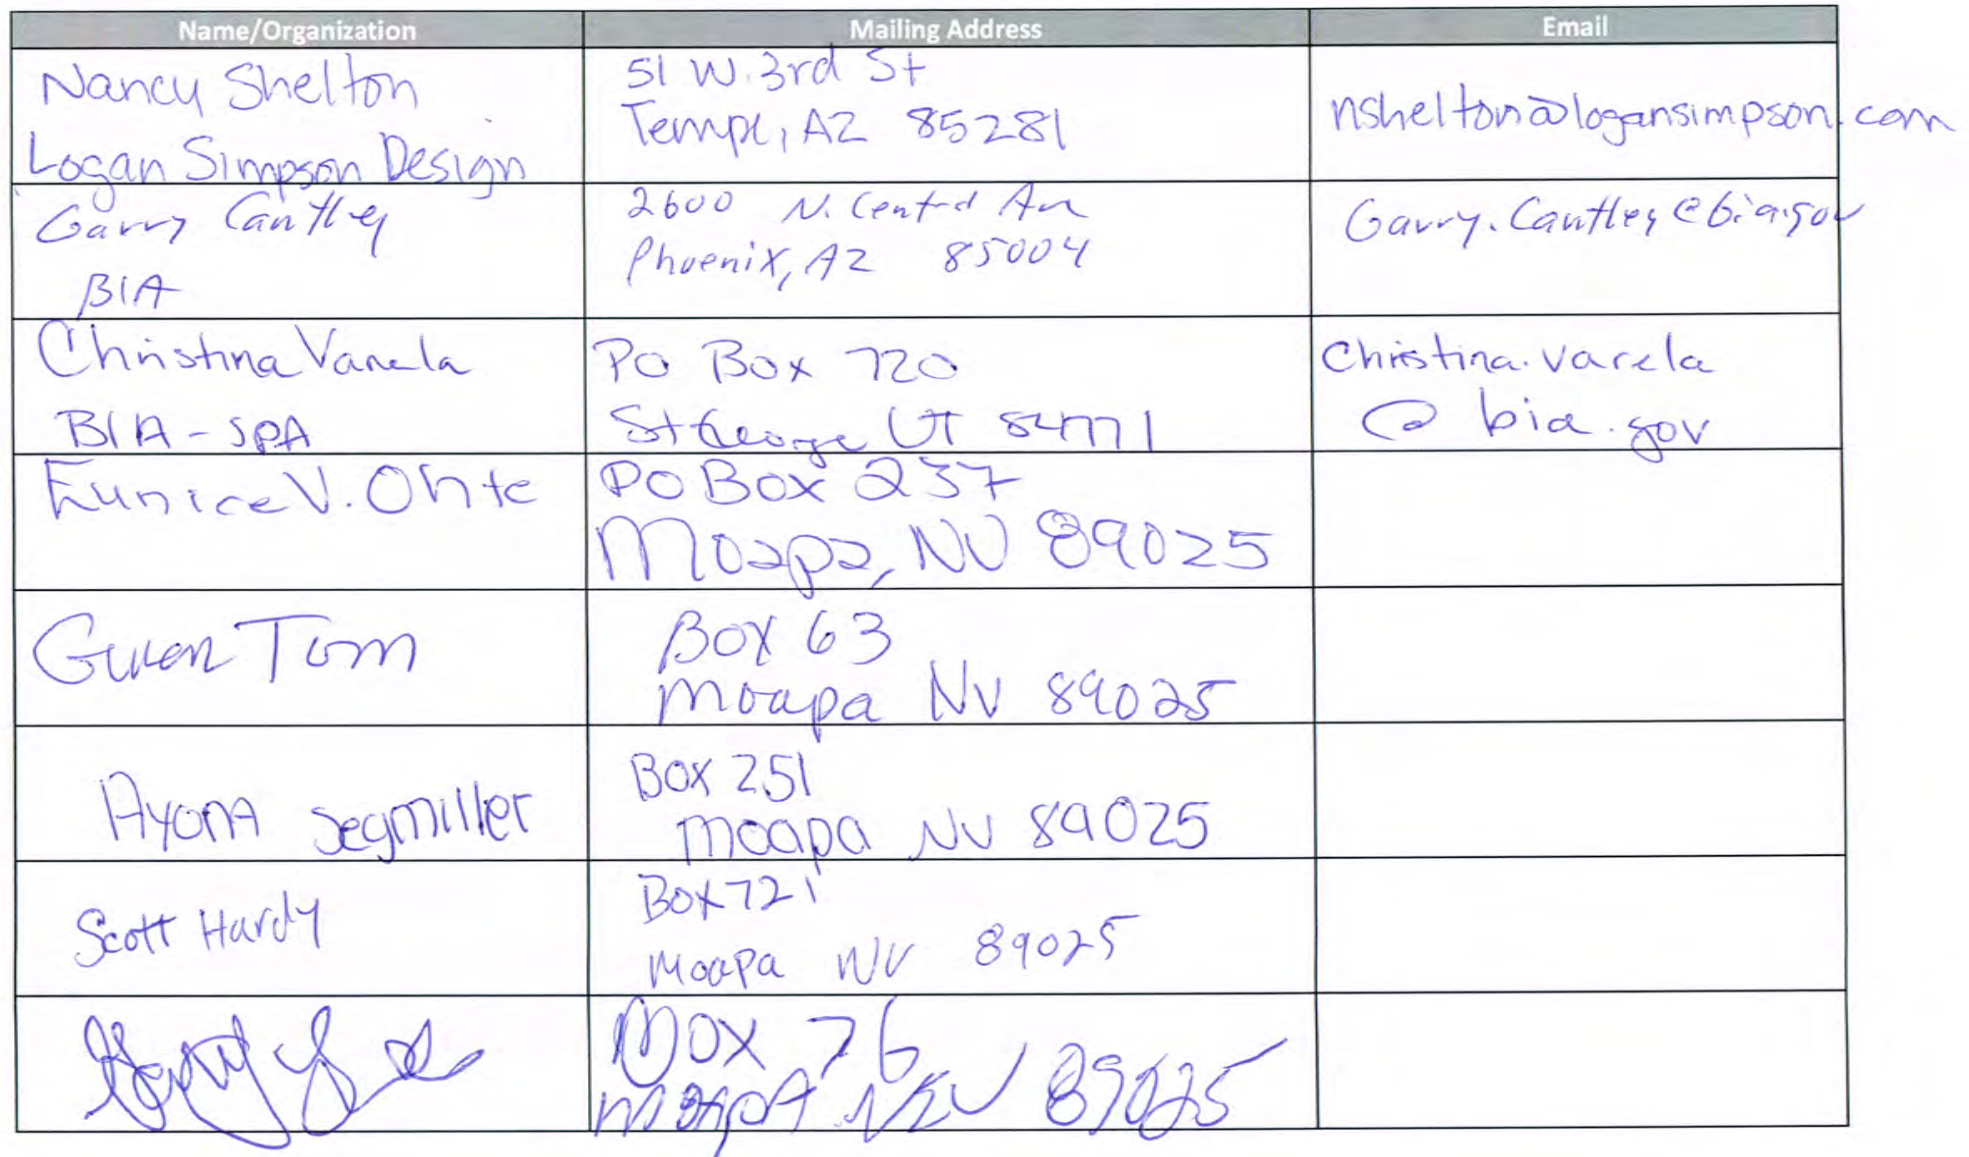 Name/Organization Mailing Address Email
Nancy Shelton
Logan Simpson Design
51 W. 3rd St
Tempe, AZ 85281
nshelton@logansimpson.com
Garry Cantley
BIA
2600 N. Central Ave
Phoenix, AZ 85004
Garry.Cantley@bia.gov
Christina Varela
BIA-SPA
PO Box 720
St George UT 84771
Christina.varela
@ bia.gov
Eunice V. Ohte
PO Box 237
Moapa, NV 89025
Gwen Tom
Box 63
Moapa NV 89025
Ayona Segmiller
Box 251
Moapa NV 89025
Scott Hardy
Box 721
Moapa NV 89025
76
Moapa NEV 89025